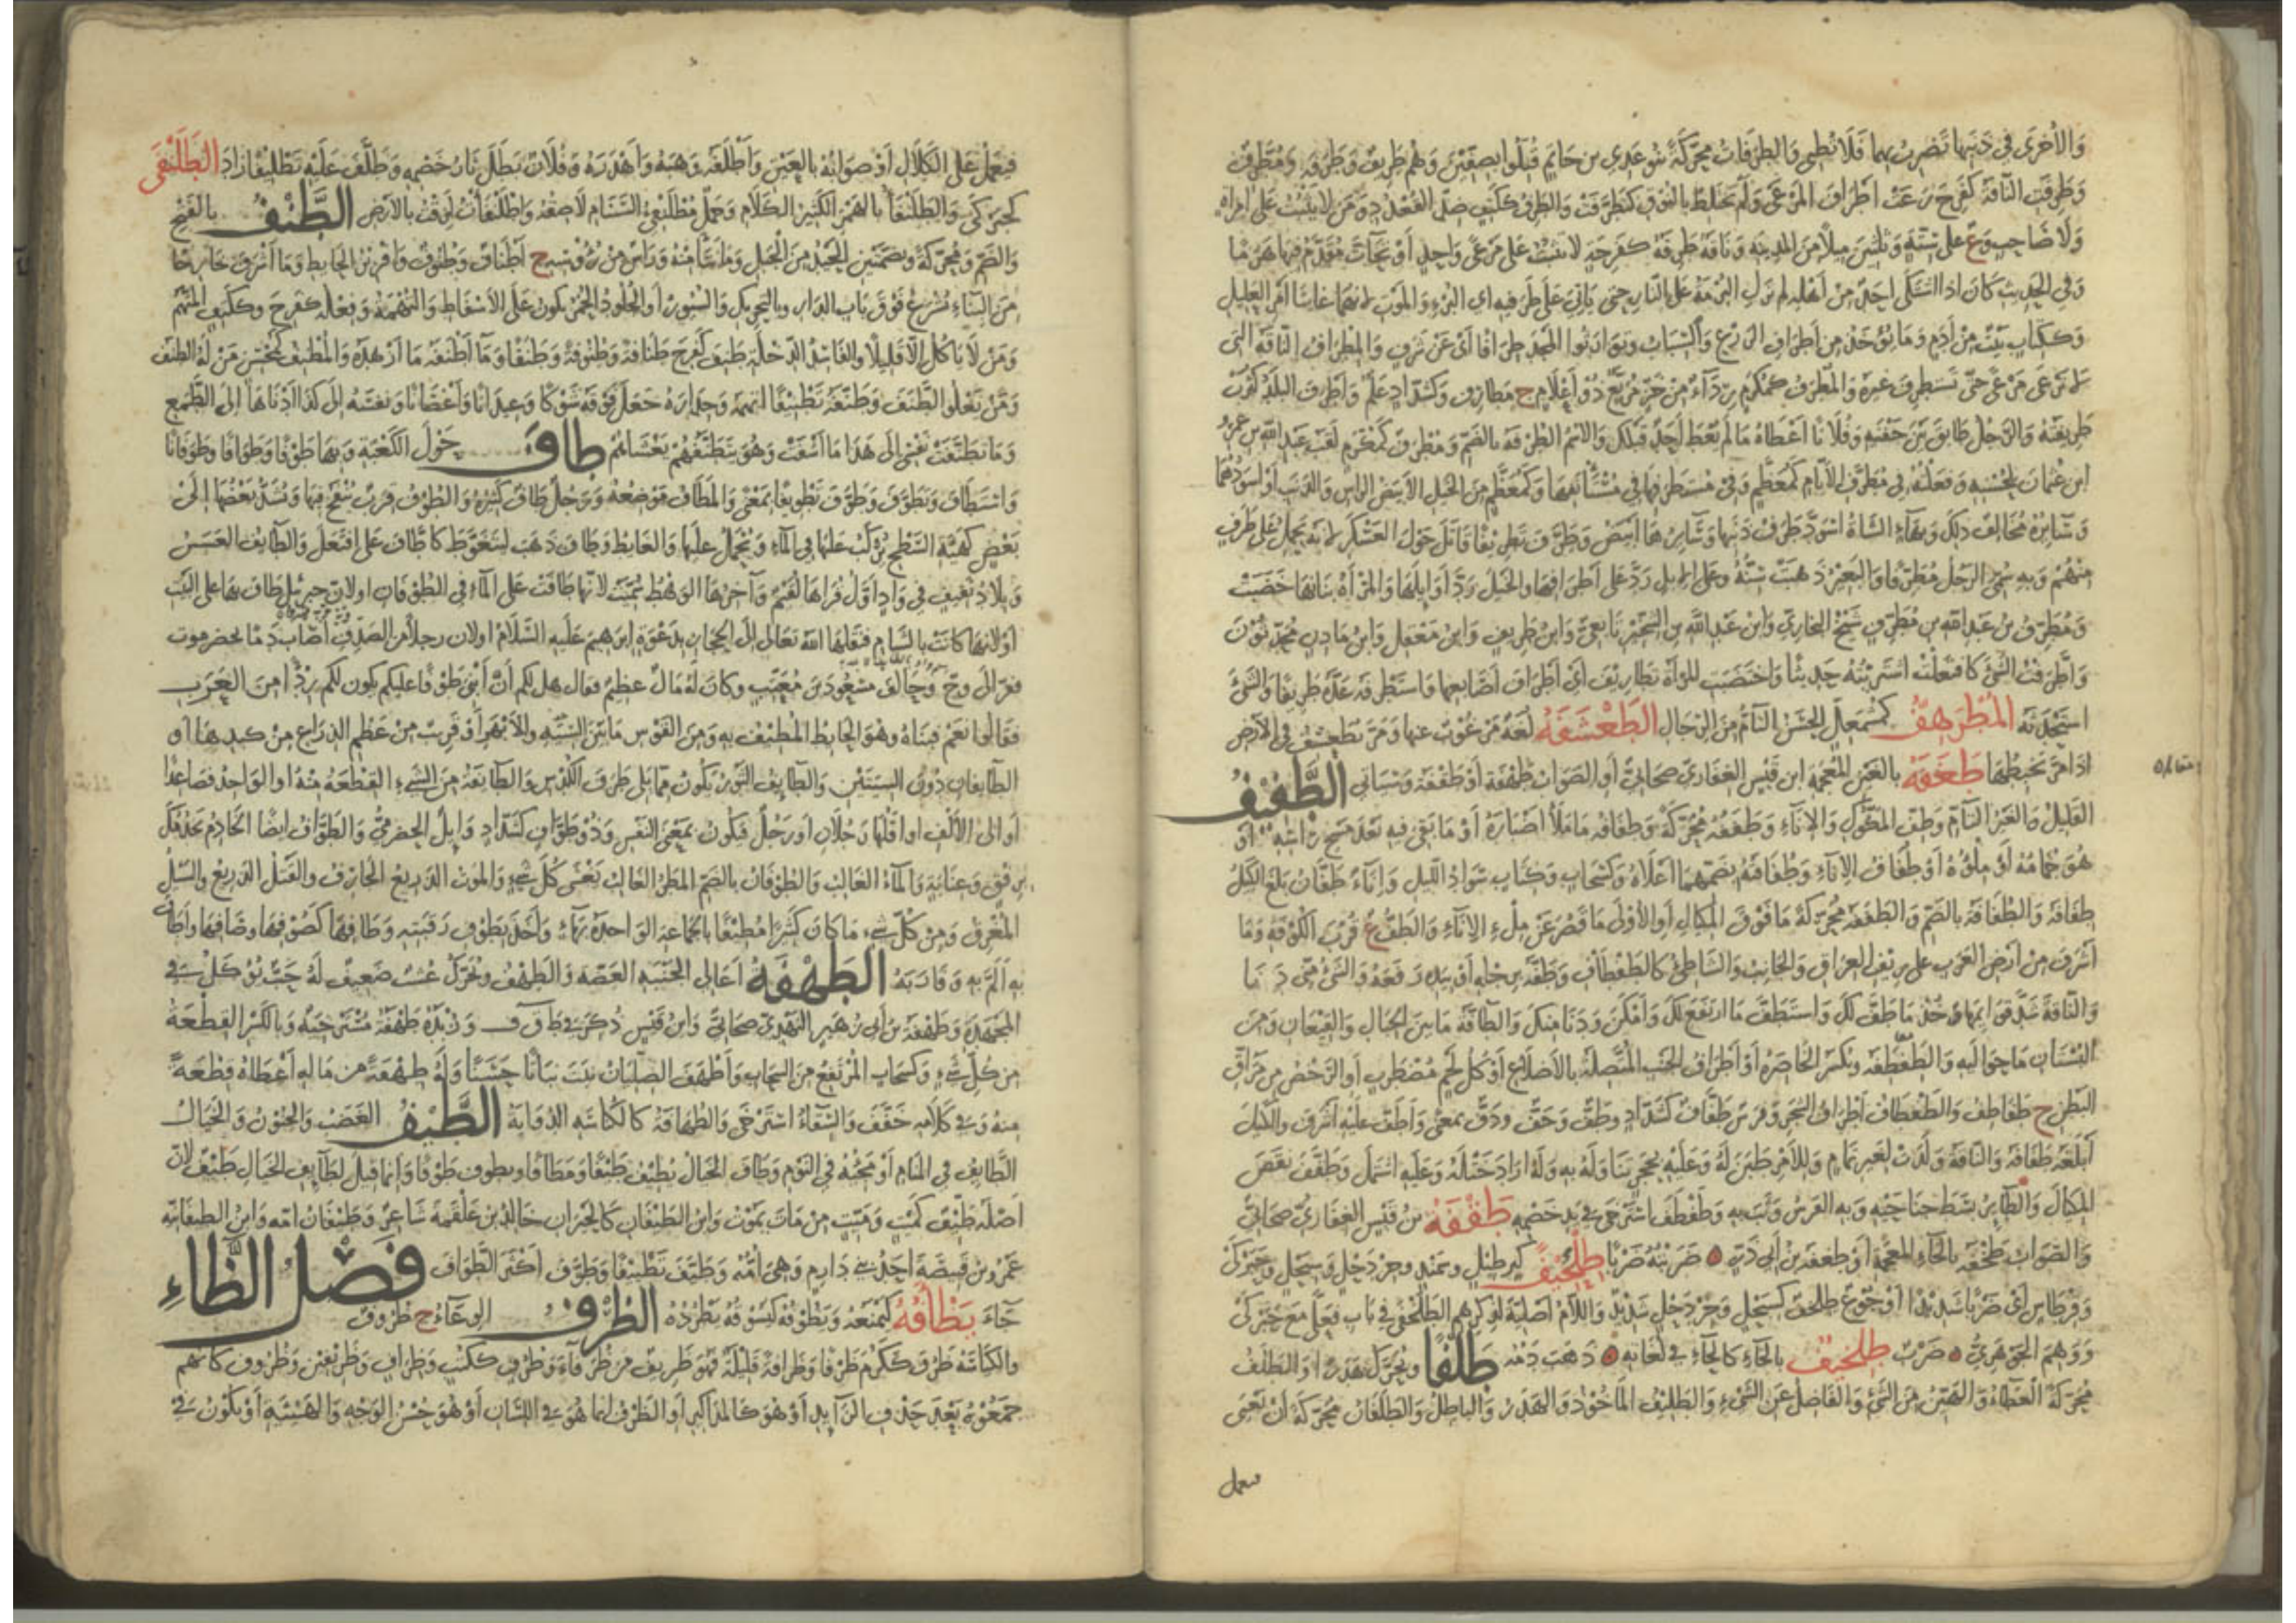 وَالأُخْرَى فى ذَنَبِها تَضْرِبُ بِهِما فَلا تُطْنِى وَالطَّرَفاتُ مُحَرَّكَةً بَنُو عَدِىِّ بنِ حاتِمٍ قُتِلُوا بِصِفِّينَ وَهُم طَرِيفٌ وَطَرَفَة وَمُطَرِّفٌ
وَطَرِفَتِ النّاقَةُ كَفَرِحَ رَعَتْ أَطْرافَ المَرْعَى وَلَمْ تَخْتَلِطْ بِالنُّوقِ كَتَطَرَّفَتْ وَالطَّرِفُ كَكَتِفٍ ضِدُّ القُعْدُدِ وَمَن لا يَثْبُتُ عَلَى امْرَأَةٍ
وَلا صاحِبٍ وَع عَلَى سِتَّةٍ وَثَلثينَ مِيلاً مِنَ المَدِينَةِ وَناقَةٌ طَرِفَةٌ كَفَرِحَةٍ لا تَثْبُتُ عَلَى مَرْعًى واحِدٍ أَوْ تَحاتَّ مُقَدَّمُ فِيها هَرَمًا
وَفى الحَدِيثِ كانَ اذا اشْتَكَى أَحَدٌ مِنْ أَهْلِهِ لم تَزَلِ البُرْمَةُ عَلَى النّارِ حتى يَأْتِىَ عَلَى طَرَفَيْهِ اى البُرْءِ وَالمَوْتِ لانهما غايَتا أَمْرِ العَلِيلِ
وَكَكِتابٍ بَيْتٌ مِنْ أَدَمٍ وَمَا يُؤْخَذُ مِن أَطْرافِ الزَّرْعِ وَالسِّبابُ وَتَوارَثُوا المَجْدَ طِرافًا أَىْ عَنْ شَرَفٍ وَالمِطْرافُ النّاقَةُ التى
لا تَرْعَى مَرْعًى حَتَّى تَسْتَطْرِفَ غَيْرَهُ وَالمُطْرَفُ كَمُكْرَمٍ رِدَآءٌ مِنْ خَزٍّ مُرَبَّعٌ ذُو أَعْلامٍ ج مَطارِفُ وَكَشَدّادٍ عَلَمٌ وَأَطْرَفَ البَلَدُ كَثُرَتْ
طَرِيفَتُهُ وَالرَّجُلُ طابَقَ بَيْنَ جَفْنَيْهِ وَفُلانًا أَعْطاهُ مَا لَمْ يُعْطِ أَحَدٌ قَبْلَكَ وَالاِسْمُ الطُّرْفَةُ بِالضَّمِّ وَمُطْرَفٌ كَمُكْرَمٍ لَقَبُ عَبْدِ اللهِ بنِ عَمْرِو
ابنِ عُثْمانَ لِحُسْنِهِ وَفَعَلْتُهُ فى مُطَّرَفِ الأَيّامِ كَمُعَظَّمٍ وَفى مُسْتَطْرَفِها فى مُسْتَأْنَفِها وَكَمُعَظَّمٍ مِنَ الخَيْلِ الأَبْيَضُ الرّاسِ وَالذَّنَبِ أَوْ أَسْوَدُهُما
وَسَآئِرُهُ مُخالِفُ ذلِكَ وَبِهَآءٍ الشَّاةُ اسْوَدَّ طَرَفُ ذَنَبِها وَسَآئِرُهَا أَبْيَضُ وَطَرَّفَ تَطْرِيفًا قاتَلَ حَوْلَ العَسْكَرِ لِأَنَّهُ يَحْمِلُ عَلَى طَرَفٍ
مِنْهُمْ وَبِهِ سُمِّىَ الرَّجُلُ مُطَرِّفًا وَالبَعِيرُ ذَهَبَتْ سِنُّهُ وعَلَى الإِبِلِ رَدَّ عَلَى أَطْرافِها وَالخَيْلَ رَدَّ أَوائِلَها وَالمَرْأَةُ بَنانَها خَضَبَتْ
وَمُطَرِّفُ بنُ عَبْدِ اللهِ بنِ مُطَرِّفٍ شَيْخُ البُخارِىِّ وَابنُ عَبْدِ اللهِ بنِ الشِّخِّيرِ تَابِعِىٌّ وَابنُ طَرِيفٍ وَابنُ مَعْقِلٍ وَابنُ مازِنٍ مُحَدِّثُونَ
وَاطَّرَفْتُ الشَّىْءَ كَافْتَعَلْتُ اشْتَرَيْتُهُ حَدِيثًا وَاخْتَضَبَتِ المَرأَةُ تَطارِيفَ أَىْ أَطْرافَ أَصابِعِها وَاسْتَطْرَفَهُ عَدَّهُ طَرِيفًا وَالشَّىْءَ
اسْتَحْدَثَهُ المُطْرَهِفُّ كَمُشْمَعِلٍّ الحَسَنُ التّامُّ مِنَ الرِّجالِ الطَّعْسَفَةُ لُغَةٌ مَرْغُوبٌ عنها وَمَرَّ يَطَعْسَفُ فى الأَرْضِ
اذا مَرَّ يَخْبِطُها طَغَفَة بِالغَيْنِ المُعْجَمَةِ ابن قَيْسٍ الغِفارِىُّ صَحابِىٌّ أَوِ الصَّوابُ طِهْفَةُ أَوْ طِقْفَة وَسَيَأتى الطَّفِيفُ
القَلِيلُ وَالغَيْرُ التّامِّ وَطَفُّ المَكُّوكِ وَالإِناءِ وَطَفَفُهُ مُحَرَّكَةً وَطَفافُهُ ما مَلَأَ أَصْبارَهُ أَوْ مَا بَقِىَ فيهِ بَعْدَ مَسْحِ رَأْسِهِ أَوْ
هُوَ جُمَامُهُ أَوْ مِلْؤُهُ أَوْ طُفافُ الإِناءِ وَطُفافَتُهُ بِضَمِّهِما أَعْلاهُ وَكَسَحابٍ وَكِتابٍ سَوادُ اللَّيْلِ وَإِناءٌ طَفّانُ بَلَغَ الكَيْلُ
طِفافَهُ وَالطُّفافَةُ بِالضَّمِّ وَالطَّفَفَةُ مُحَرَّكَةً مَا فَوْقَ المِكْيالِ أَوِ الأُوْلَى مَا قَصُرَ عَنْ مِلْءِ الإِنَاءِ وَالطَّفُّ ع قُرْبَ الكُوفَةِ وَمَا
أَشْرَفَ مِنْ أَرْضِ العَرَبِ عَلَى رِيفِ العِراقِ وَالجَانِبُ وَالشّاطِئُ كَالطَّفْطافِ وَطَفَّهُ بِرِجْلِهِ أَوْ بِيَدِهِ رَفَعَهُ وَالشَّىْءُ مِنْهُ دَنا
وَالنّاقَةَ شَدَّ قَوائِمَها وَخُذْ ما طَفَّ لَكَ وَاسْتَطَفَّ مَا ارْتَفَعَ لَكَ وَأَمْكَنَ وَدَنا مِنكَ وَالطّافَّةُ ما بَيْنَ الجِبالِ وَالقِيعانِ وَمِنَ
البُسْتانِ ما حَوالَيْهِ وَالطَّفْطَفَةُ وتُكْسَرُ الخاصِرَةُ أَوْ أَطْرافُ الجَنْبِ المُتَّصِلَةُ بِالأَضْلاعِ أَوْ كُلُّ لَحْمٍ مُضْطَرِبٍ أَوِ الرَّخْصُ مِن مَراقِّ
البَطْنِ ج طَفاطِفُ وَالطَّفْطافُ أَطْرافُ الشَّجَرِ وَفَرَسٌ طَفّافٌ كَشَدّادٍ وَطَفٌّ وَخَفٌّ وَدَفٌّ بِمَعْنًى وَأَطَفَّ عَلَيْهِ أَشْرَفَ وَالكَيْلَ
أَبْلَغَهُ طَفافَهُ وَالنّاقَةُ وَلَدَتْ لِغَيْرِ تَمامٍ وَلِلأَمْرِ طَبَنَ لَهُ وَعَلَيْهِ بِحَجَرٍ تَناوَلَهُ بِهِ وَلَهُ أَرادَ خَتْلَهُ وَعَلَيْهِ اشْتَمَلَ وَطَفَّفَ نَقَصَ
المِكْيالَ وَالطّائِرُ بَسَطَ جَناحَيْهِ وَبِهِ الفَرَسُ وَثَبَ بِهِ وَطَفْطَفَ اسْتَرْخَى فى يَدِ خَصْمِهِ طَقْفَةُ بنُ قَيْسٍ الغِفارِىُّ صَحابِىٌّ
وَالصَّوابُ طِخْفَة بِالخاءِ المُعْجَمَةِ أَوْ طِغْفَة بن أَبى ذَرٍّ ضَرَبْتُهُ ضَرْبًا طِلَحِيفًا كَبِرْطِيلٍ وَسَمَنْدٍ وجِرْدَحْلٍ وَسِبَحْلٍ وَحَبَرْكًى
وَقِرْطاسٍ أَىْ ضَرْبًا شَدِيدًا وَجُوعٌ طِلَحْفٌ كَسِبَحْلٍ وَجِرْدَحْلٍ شَدِيدٌ وَاللّامُ أَصْلِيَّةٌ لِذِكْرِهِم الطَّلَحْفَى فى بابِ فَعَلَّى مَعَ حَبَرْكًى
وَوَهِمَ الجَوْهَرِىُّ ضَرْبٌ طِلْخِيفٌ بِالخآءِ كَالحآءِ فى لُغاتِهِ ذَهَبَ دَمُهُ طَلْفًا وَيُحَرَّكُ هَدَرًا وَالطَّلَفُ
مُحَرَّكَةً العَطآءُ وَالهَيِّنُ مِنَ الشَّىْءِ وَالفاضِلُ عَنِ الشَّىْءِ وَالطَّلِيفُ المَأْخُوذُ وَالهَدَرُ وَالباطِلُ وَالطَّلَفانُ مُحَرَّكَةً أَنْ يَعْيَى
فيعمل
فَيَعْمَلَ عَلَى الكَلالِ أَوْ صَوابُهُ بِالغَيْنِ وَأَطْلَفَهُ وَهَبَهُ وَأَهْدَرَهُ وَفُلانٌ بَطَلَ ثَارُ خَصْمِهِ وَطَلَّفَ عَلَيْهِ تَطْلِيفًا زادَ الطَّلَنْفَى
كَحَبَرْكًى وَالطَّلَنْفَأُ بِالهَمْزِ الكَثِيرُ الكَلامِ وَجَمَلٌ مُطْلَنْفِئُ السَّنامِ لاصِقُهُ وَاطْلَنْفَأْتُ لَزِقْتُ بِالأَرْضِ الطَّنْفُ بِالفَتْحِ
وَالضَّمِّ وَمُحَرَّكَةً وَبِضَمَّتَيْنِ الحَيْدُ مِنَ الجَبَلِ وَمَا نَتَأَ مِنْهُ وَرَأْسٌ مِنْ رُؤُوسِهِ ج أَطْنافٌ وَطُنُوفٌ وَإِفْرِيزُ الحائِطِ وَمَا أَشْرَفَ خَارِجًا
مِنَ البِنَاءِ تُشْرَعُ فَوْقَ بابِ الدّارِ وَبِالتَّحْرِيكِ وَالسُّيُورُ أَوِ الجُلُودُ الحُمْرُ تَكُونُ عَلَى الأَسْفاطِ وَالتُّهَمَةُ وَفِعْلُهُ كَفَرِحَ وَكَكَتِفٍ المُتَّهَمُ
وَمَنْ لا يَأْكُلُ إِلّا قَلِيلاً وَالفاسِدُ الدِّخْلَةِ طَنِفَ كَفَرِحَ طَنافَةً وَطُنُوفَةً وَطَنَفًا وَمَا أَطْنَفَهُ مَا أَزْهَدَهُ وَالمُطْنِفُ كَمُحْسِنٍ مَنْ لَهُ الطَّنَفُ
وَمَنْ يَعْلُو الطَّنَفَ وَطَنَّفَهُ تَطْنِيفًا اتَّهَمَهُ وَجِدارَهُ جَعَلَ فَوْقَهُ شَوْكًا وَعِيدانًا وَأَغْصانًا وَنَفْسَهُ إلى كَذا أَدْناها إلى الطَّمَعِ
وَمَا تَطَنَّفَتْ نَفْسِى إلى هَذا مَا أَشْفَتْ وَهُوَ يَتَطَنَّفُهُمْ يَغْشاهُمْ طافَ حَوْلَ الكَعْبَةِ وَبِها طَوْفًا وَطَوافًا وَطَوَفانًا
وَاسْتَطافَ وَتَطَوَّفَ وَطَوَّفَ تَطْوِيفًا بِمَعْنًى وَالمَطافُ مَوْضِعُهُ وَرَجُلٌ طافٌ كَثِيرُهُ وَالطَّوْفُ قِرَبٌ يُنْفَخُ فِيها وَيُشَدُّ بَعْضُها إِلَى
بَعْضٍ كَهَيْئَةِ السَّطْحِ يُرْكَبُ عَلَيْها فى المآءِ وَيُحْمَلُ عَلَيْها وَالغَائِطُ وَطافَ ذَهَبَ لِيَتَغَوَّطَ كَاطّافَ عَلَى افْتَعَلَ وَالطَّائِفُ العَسَسُ
وَبِلادُ ثَقِيفٍ فى وَادٍ أَوَّلُ قُراها لُقَيْمٌ وَآخِرُها الوَهْطُ سُمِّيَتْ لِأَنَّها طافَتْ عَلَى المآءِ فى الطُّوفانِ او لأنّ جِبْرِئيلَ طافَ بِها عَلى البَيْتِ
أَوْ لأنها كانَتْ بِالشّامِ فَنَقَلَها اللهُ تَعالَى إلى الحِجازِ بِدَعْوَةِ إِبْرهِيمَ عَلَيْهِ السَّلامُ او لان رجلاً مِنَ الصَّدِفِ أَصابَ دَمًا بحضرموت
ففرّ إلى وجّ وَحالَفَ مَسْعُودَ بنَ مُعَتِّبٍ وكانَ لَهُ مالٌ عَظِيمٌ فقال هل لكم أَنْ أَبْنِىَ طَوْفًا عليكم يكون لكم رِدْءًا مِنَ العَرَبِ
فَقالُوا نَعَمْ فَبَناهُ وَهُوَ الحائِطُ المُطِيفُ بِهِ وَمِنَ القَوْسِ ما بَيْنَ السِّيَةِ وَالأَبْهَرِ أَوْ قَرِيبٌ مِنْ عَظْمِ الذِّراعِ مِنْ كَبِدِها أَوِ
الطّائِفانِ دُونَ السِّيَتَيْنِ وَالطّائِفُ الثَّوْرُ يَكُونُ مِمّا يَلِى طَرَفَ الكُدْسِ وَالطّائِفَةُ مِنَ الشَّىْءِ القِطْعَةُ مِنْهُ أَوِ الواحِدُ فَصاعِدًا
أَوْ إِلى الأَلْفِ او أَقَلُّها رَجُلانِ اورَجُلٌ فَيَكُونُ بِمَعْنَى النَّفْسِ وَذُو طَوّافٍ كَشَدّادٍ وَائِلٌ الحَضْرَمِىُّ وَالطَّوّافُ ايضًا الخَادِمُ يَخْدُمُكَ
بِرِفْقٍ وَعِنايَةٍ وَالمآءُ الغالِبُ وَالطُّوفانُ بِالضَّمِّ المَطَرُ الغالِبُ يَغْشَى كُلَّ شَىْءٍ وَالمَوْتُ الذَّرِيعُ الجارِفُ وَالقَتْلُ الذَّرِيعُ وَالسَّيْلُ
المُغْرِقُ وَمِنْ كُلِّ شَىْءٍ مَا كانَ كَثِيرًا مُطِيفًا بِالجَماعَةِ الواحِدَةُ بِهآءٍ وَأَخَذَ بِطُوفِ رَقَبَتِهِ وَطافِها كَصُوفِها وصَافِها وَأَطافَ
بِهِ أَلَمَّ بِهِ وَقَارَبَهُ الطَّهْفَةُ أَعالى الجَنْبَةِ الغَضَّة وَالطَّهْفُ وَيُحَرَّكُ عُشْبٌ ضَعِيفٌ لَهُ حَبٌّ يُؤْكَلُ فى
المَجْهَدَةِ وَطَهْفَةُ بنُ أَبى زُهَيْرٍ النَّهْدِىُّ صَحابِىٌّ وَابنُ قَيْسٍ ذُكِرَ فى ط ق ف وَزُبْدَةٌ طَهْفَةٌ مُسْتَرْخِيَةٌ وَبِالكَسْرِ القِطْعَةُ
مِن كُلِّ شَىْءٍ وَكَسَحابٍ المُرْتَفِعُ مِنَ السَّحابِ وَأَطْهَفَ الصِّلِّيانُ نَبَتَ نَباتًا حَسَنًا وَلَهُ طِهْفَةً من مالِهِ أَعْطاهُ قِطْعَةً
مِنهُ وَفى كَلامِهِ خَفَّفَ وَالسِّقاءُ اسْتَرْخَى وَالطُّهافَةُ كَالكُناسَةِ الذُّوابَةُ الطَّيْفُ الغَضَبُ وَالجُنُونُ وَالخَيالُ
الطّائِفُ فى المَنامِ أَوْ مَجِيئُهُ فى النَّوْمِ وَطافَ الخَيالُ يَطِيفُ طَيْفًا وَمَطافًا وَيَطُوفُ طَوْفًا وَإِنَّما قِيلَ لِطائِفِ الخَيالِ طَيْفٌ لِأنَّ
أَصْلَهُ طَيِّفٌ كَمَيِّتٍ وَمَيْتٍ مِنْ ماتَ يَمُوتُ وَابنُ الطَّيَفانِ كَالحَيَرانِ خالِدُ بن عَلْقَمَةَ شَاعِرٌ وَطَيَفانُ أمّه وَابنُ الطَّيفانِيَّةِ
عَمْرُو بنُ قَبِيصَةَ أَحَدُ بَنِى دارِمٍ وَهِىَ أُمُّهُ وَطَيَّفَ تَطْيِيفًا وَطَوَّفَ أَكْثَرَ الطَّوافَ فَصْلُ الظّاءِ
جآءَ يَظْأَفُهُ كَيَمْنَعُهُ وَيَظُوفُهُ كَيَسُوقُهُ يَطْرُدُهُ الظَّرْفُ الوِعآءُ ج ظُرُوفٌ
وَالكِياسَةُ ظَرُفَ كَكَرُمَ ظَرْفًا وَظَرافَةً قَلِيلَةً فَهُوَ ظَرِيفٌ مِن ظُرَفآءَ وَظُرُفٍ ككُتُبٍ وَظِرافٍ وَظَرِيفِينَ وَظُرُوفٍ كأنّهم
جَمَعُوهُ بَعْدَ حَذْفِ الزّائِدِ أَوْ هُوَ كَالمَذاكِيرِ أَوِ الظَّرْفُ إِنّما هُوَ فى اللِّسانِ أَوْ هُوَ حُسْنُ الوَجْهِ وَالهَيْئَةِ أَوْ يَكُونُ فى